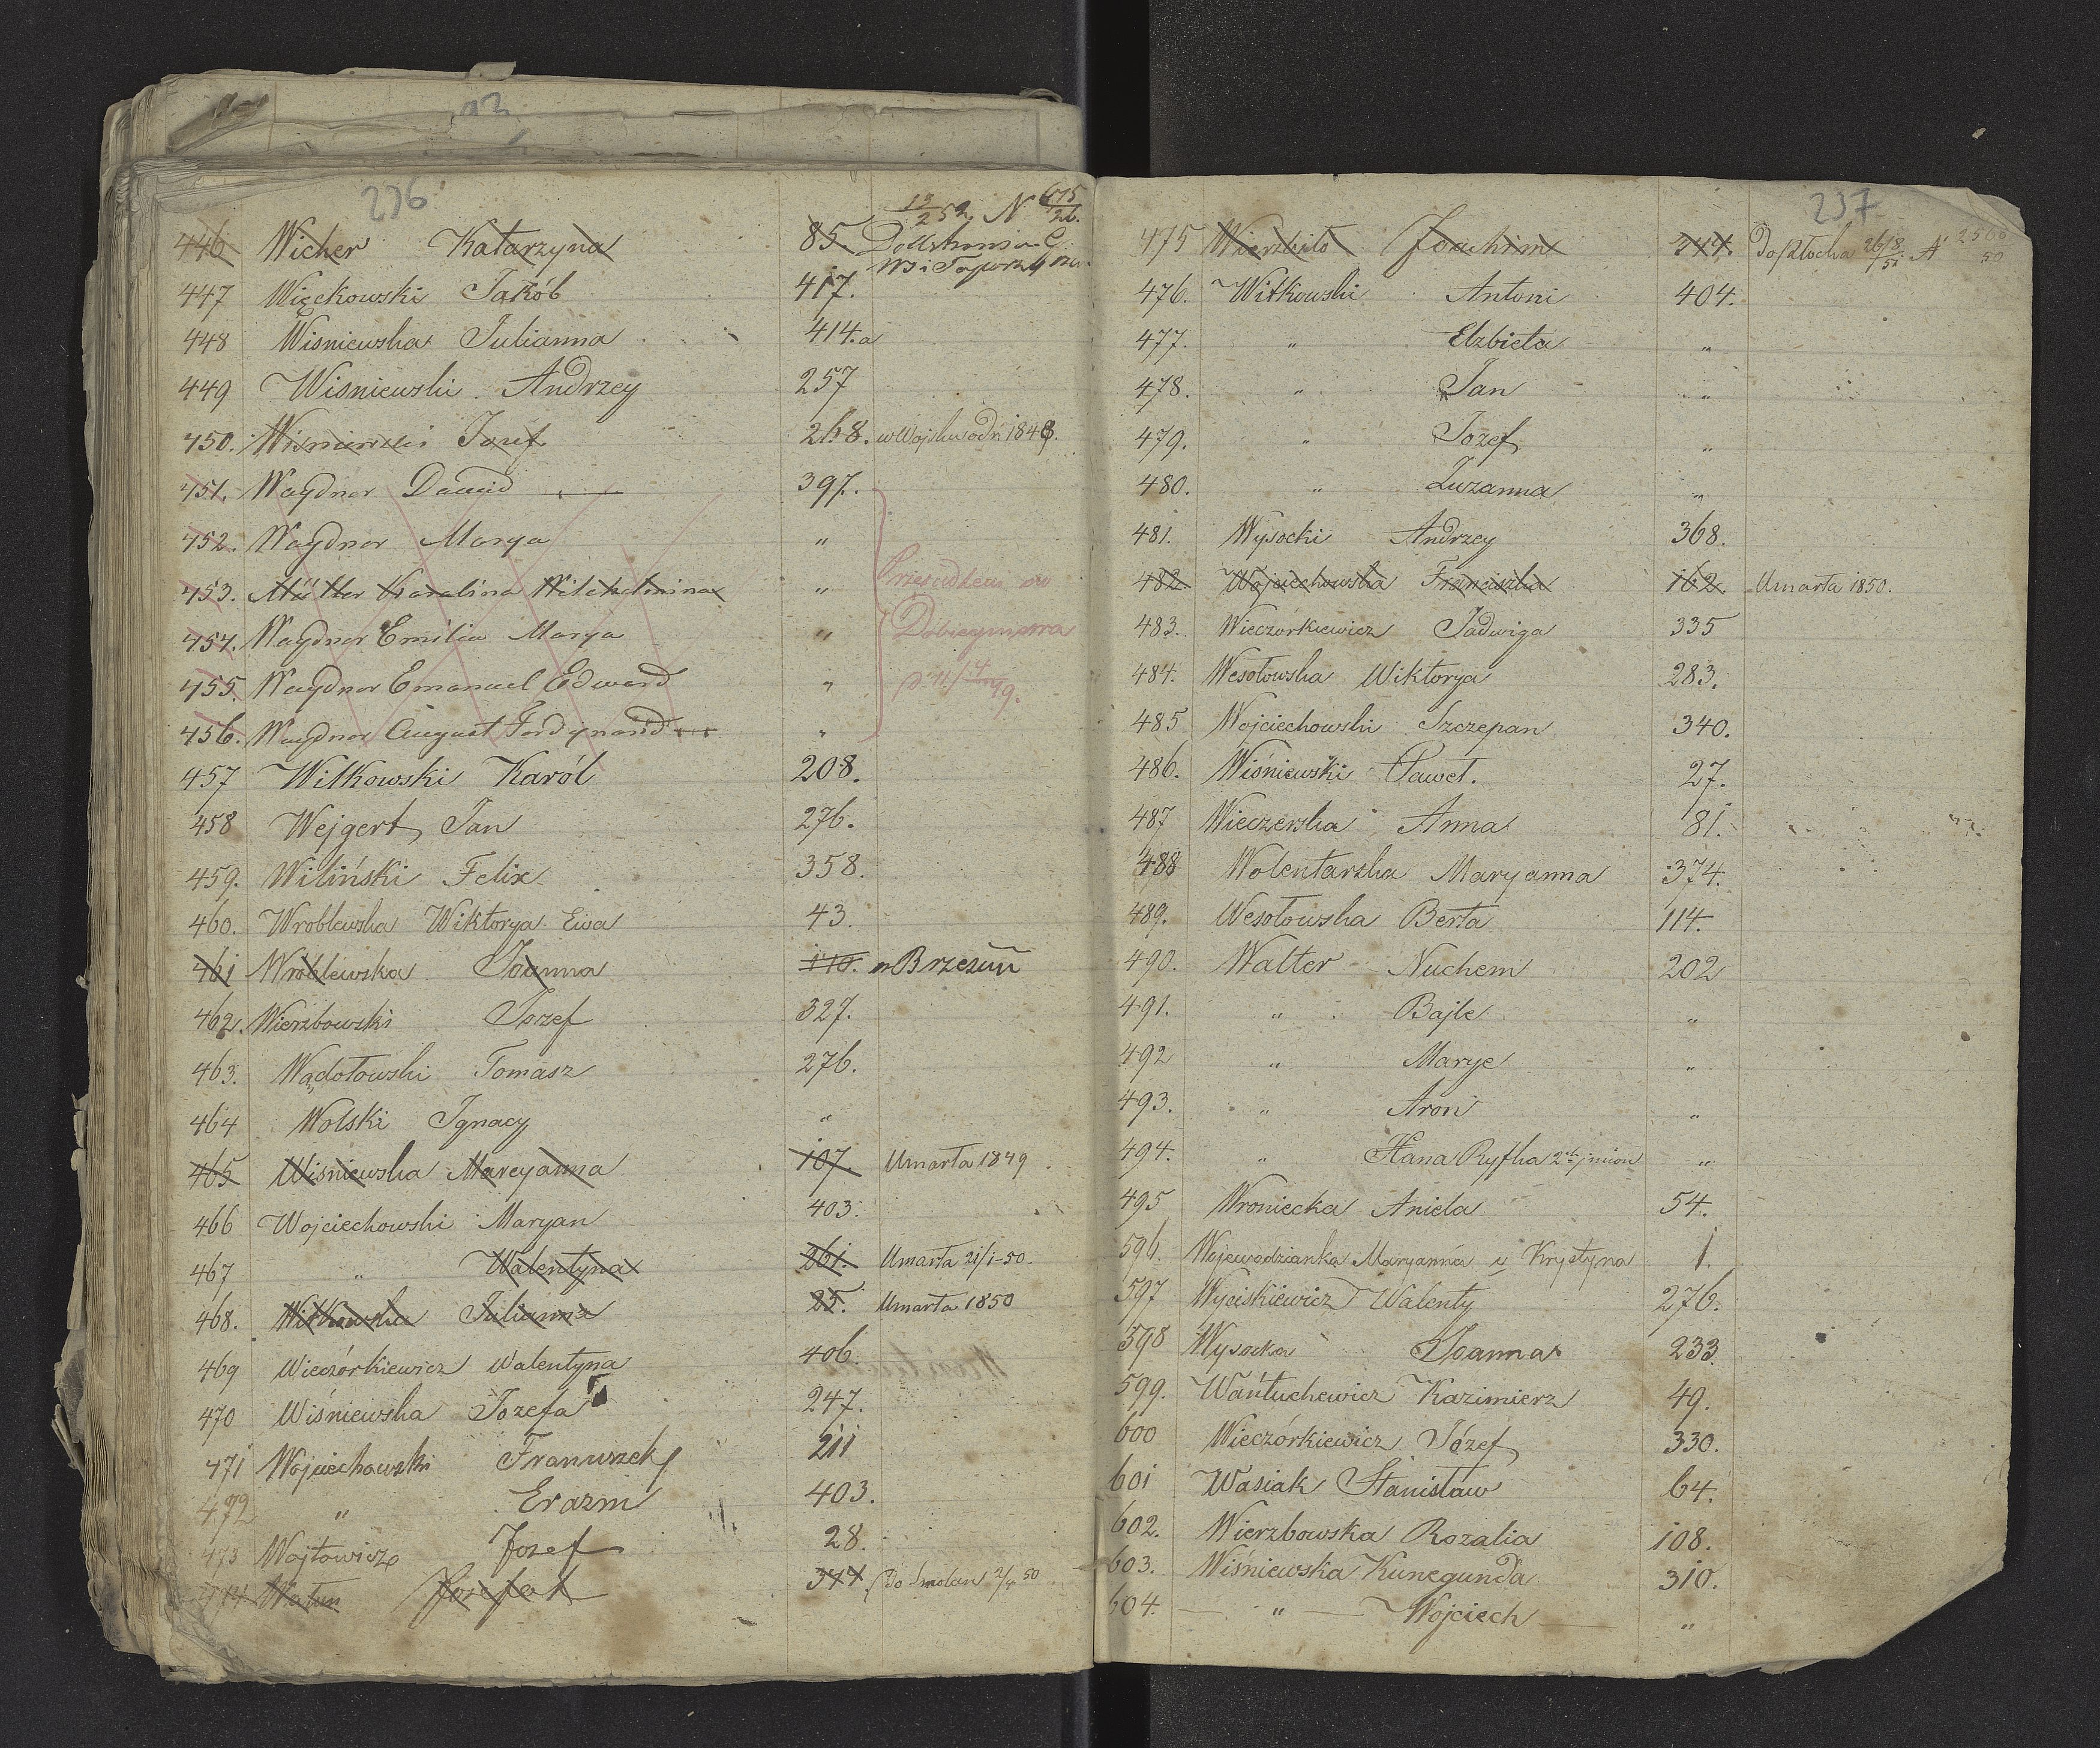 93
236
13/2 52 N 675/26.
446 Wicher Katarzyna 85.
447 Więckowski Jakób 417.
448 Wisniewska Julianna 414.a
449 Wisniewski Andrzey 257
450. Wisniewski Jozef 268. w Wojsku od r. 1848.
451. Waydner Dawid 397.
452. Waydner Marya "
453. Müller Karolina Wilchelmina "
454. Waydner Emilia Marya "
455. Waydner Emanuel Edward "
456. Waydner August Ferdynand "
457 Witkowski Karól 208.
458 Wejgert Jan 276.
459. Wiliński Felix 358.
460. Wroblewska Wiktorya Ewa 43.
461 Wroblewska Joanna 110.
462. Wierzbowski Jozef 327.
463. Wądołowski Tomasz 276.
464 Wolski Ignacy "
465 Wisniewska Maryanna 107. Umarła 1849
466 Wojciechowski Maryan 403.
467 " Walentyna 261. Umarła 21/1-50.
468. Witkowska Julianna 25. Umarła 1850
469 Wieczórkiewicz Walentyna 406.
470 Wiśniewska Jozefa 247.
471 Wojciechowski Franciszek 211
472 " Erazm 403.
473 Wojtowicz Jozef 28.
474 Jozefat 344
237
475 Wierzbiło Joachim 244. Do Płocka 26/8 51 N 2566/50
476. Witkowski Antoni 404.
477. " Elzbieta "
478. " Jan "
479. " Jozef "
480. " Zuzanna "
481. Wysocki Andrzey 368.
482. Wojciechowska Franciszka 162. Umarła 1850.
483. Wieczorkiewicz Jadwiga 335
484. Wesołowska Wiktorya 283.
485 Wojciechowski Szczepan 340.
486. Wiśniewski Paweł. 27.
487 Wieczerska Anna 81.
488 Wolentarska Maryanna 374.
489. Wesołowska Berta 114.
490. Walter Nuchem 202
491. " Bajle "
492 " Marye "
493. " Aron "
494. " Hana Ryfka 2ch imion "
495 Wroniecka Aniela 54.
596. Wojewodzianka Maryanna y Krystyna 1.
597 Wyciskiewicz Walenty 276.
598 Wysocka Joanna 233.
599. Wańtuchewicz Kazimierz 49.
600 Wieczórkiewicz Józef 330.
601 Wasiak Stanisław 64.
602. Wierzbowska Rozalia 108.
603. Wiśniewska Kunegunda 310.
604. " Wojciech "